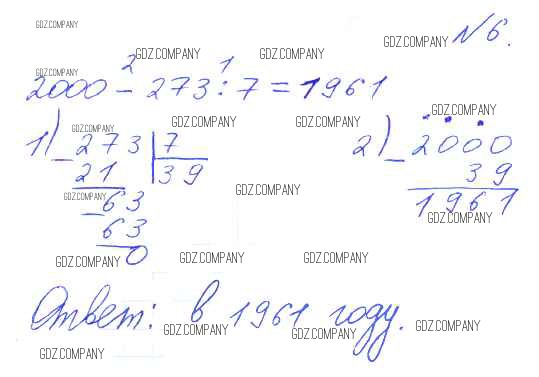 GDZ.COMPANY
GDZ.COMPANY GDZ.COMPANY GDZ.COMPANY №6.
2 1
GDZ.COMPANY
2000 - 273 : 7 = 1961
GDZ.COMPANY GDZ.COMPANY GDZ.COMPANY GDZ.COMPANY
1) 273 | 7 2) 2000
21 | 39 39
GDZ.COMPANY 63 GDZ.COMPANY 1961
GDZ.COMPANY
63
GDZ.COMPANY 0 GDZ.COMPANY GDZ.COMPANY
Ответ: в 1961 году.
GDZ.COMPANY GDZ.COMPANY GDZ.COMPANY
GDZ.COMPANY